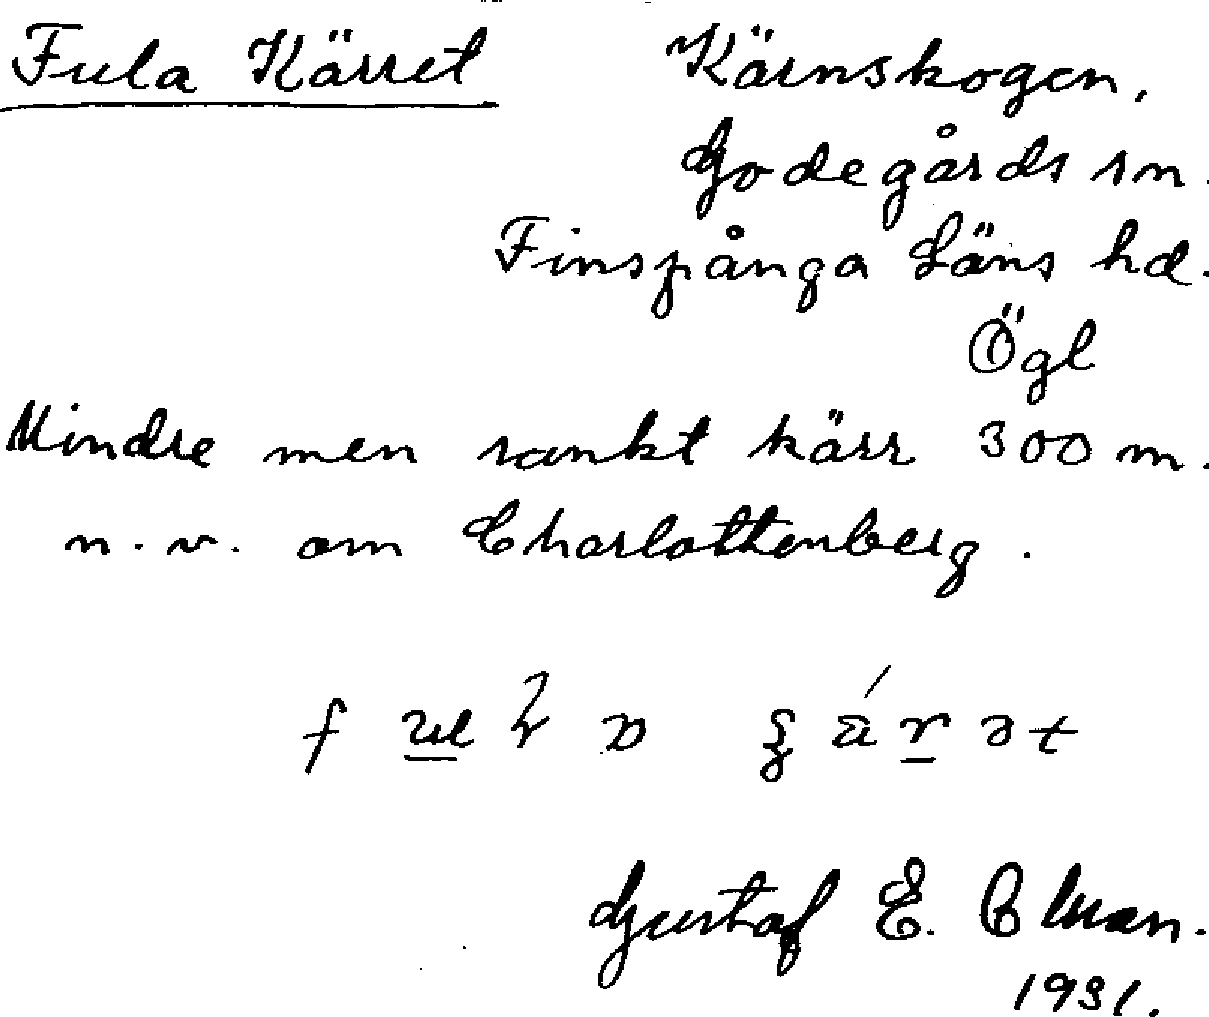 Fula Kärret Kärnskogen,
Godegårds sn.
Finspånga Läns hd.
Ögl
Mindre men sankt kärr 300 m.
n.v. om Charlottenberg.
Gustaf E.
1931.